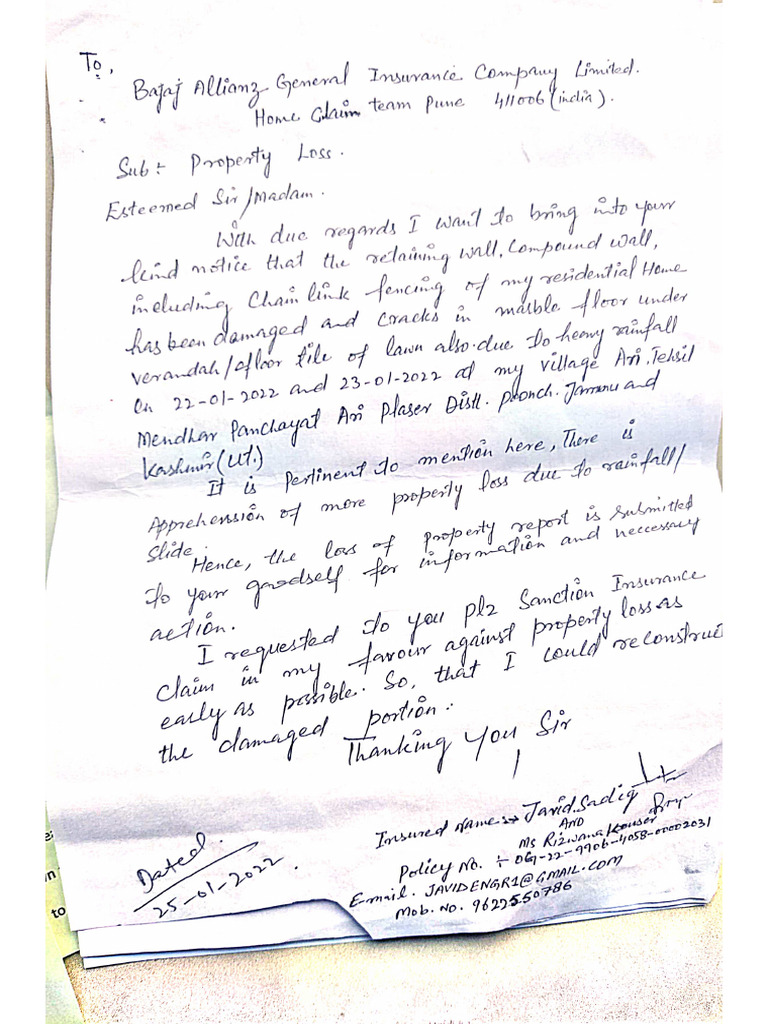 To,
Bajaj Allianz General Insurance Company Limited.
Home Claim team Pune 411006 (india).
Sub:- Property Loss.
Esteemed Sir/Madam.
With due regards I want to bring into your
kind notice that the retaining wall, Compound wall,
including Chain link fencing of my residential Home
has been damaged and cracks in marble floor under
verandah/floor tile of lawn also due to heavy rainfall
On 22-01-2022 and 23-01-2022 at my village Ari, Tehsil
Mendhar Panchayat Ari Plaser Distt. Poonch. Jammu and
Kashmir (UT.)
It is Pertinent to mention here, There is
Apprehenssion of more property loss due to rainfall/
Slide.
Hence, the loss of property report is submitted
to your goodself for information and neccessary
action.
I requested to you Plz Sanction Insurance
Claim in my favour against property loss as
early as possible. So, that I could reconstruct
the damaged portion.
Thanking you Sir
Insured Name:→ Javid.Sadiq
AND
Ms Rizwana Kouser
Policy No. :- OG-22-9906-4058-00002031
E-mail. JAVIDENGR1@GMAIL.COM
Mob. No. 9622550786
Dated.
25-01-2022
to